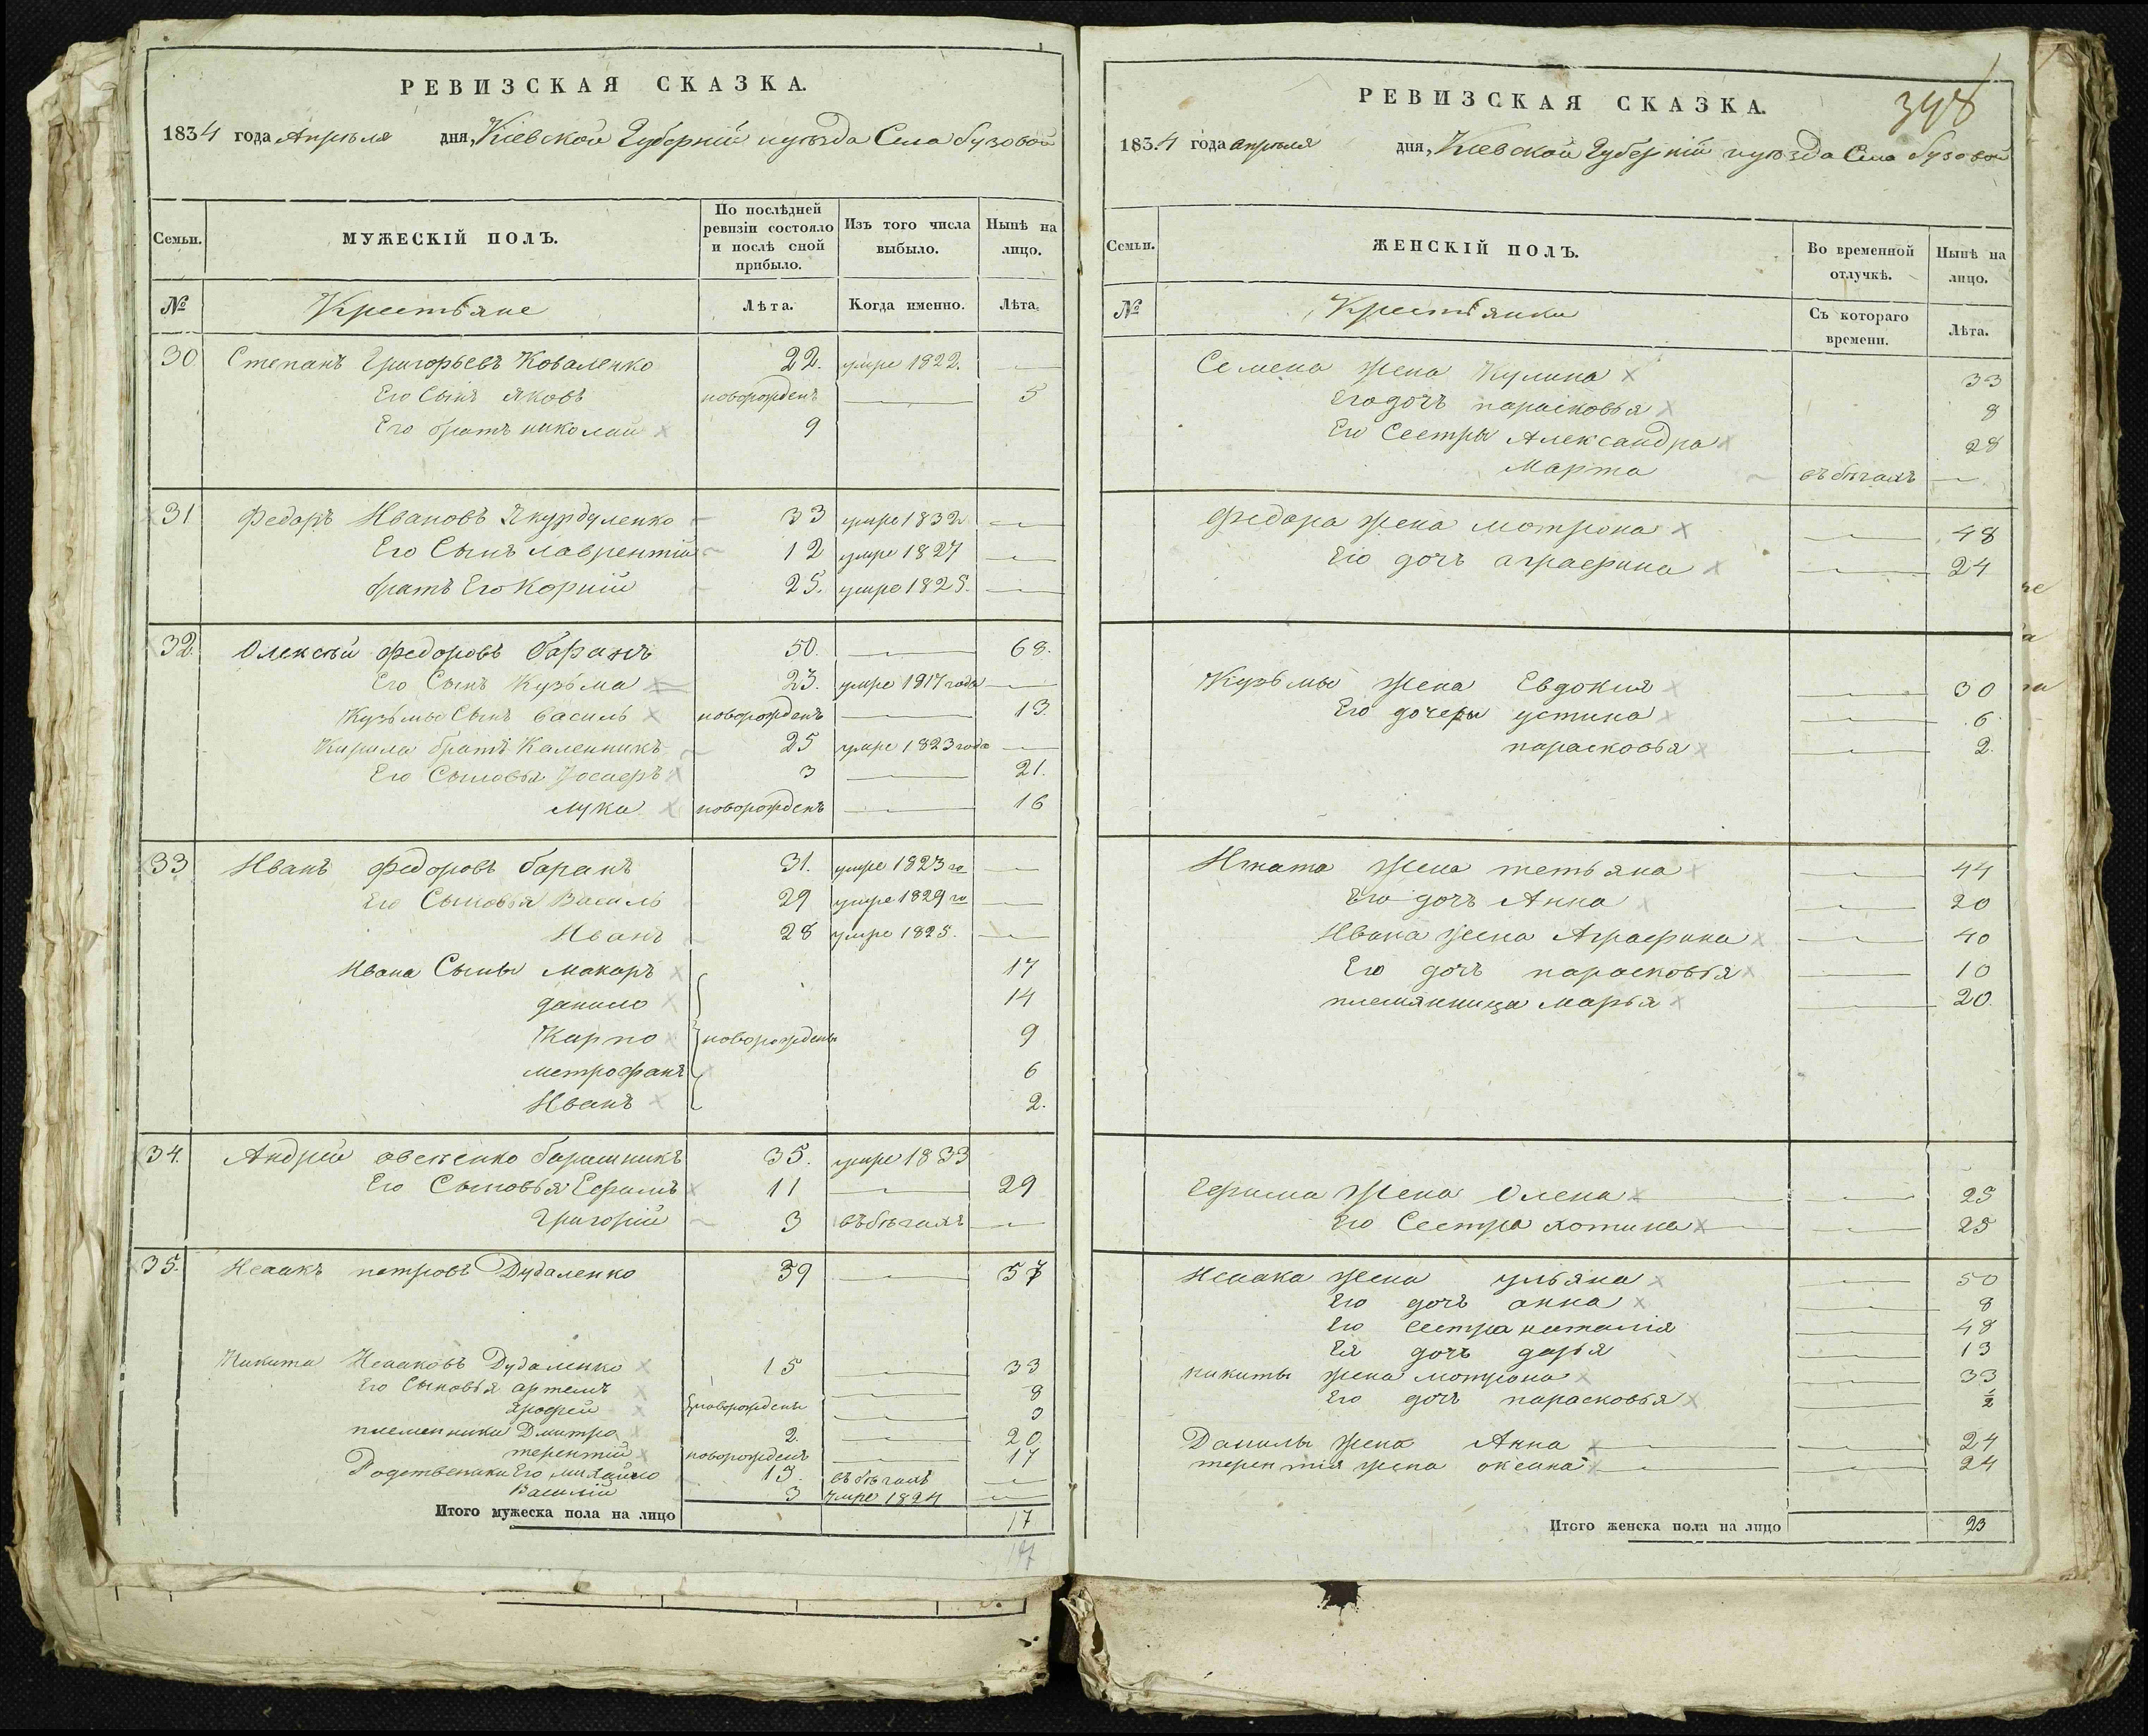 РЕВИЗСКАЯ СКАЗКА.
1834 года Апреля дня, Кіевской Губерніи и уезда Села бузовой
Семьи.
МУЖЕСКІЙ ПОЛЪ.
По послѣдней ревизіи состояло и послѣ сной прибыло.
Изъ того числа выбыло.
Нынѣ на лицо.
№ Крестьяне Лѣта. Когда именно. Лѣта.
30 Степанъ Григорьевъ Коваленко 22. умре 1822. —
Его Сынъ Яковъ новорожденъ — 5
Его братъ николай 9
31 Федоръ Ивановъ Шкурдуленко 33 умре 1832 —
Его Сынъ лаврентій 12 умре 1827 —
братъ Его Корнiй 25. умре 1825. —
32 Олексѣй федоровъ баранъ 50. — 68.
Его Сынъ Кузьма 23. умре 1817 года —
Кузьмы Сынъ василь новорожденъ — 13.
Кирила братъ Каленникъ 25 умре 1823 года —
Его Сыновья 3 — 21.
лука новорожденъ — 16
33 Иванъ федоровъ баранъ 31. умре 1823 го —
Его Сыновья Василь 29 умре 1829 го —
Иванъ 28 умре 1825. —
Ивана Сыны Макаръ 17
данило 14
Карпо новорождены 9
метрофанъ 6
Иванъ 2.
34. Андрей овсѣенко барашникъ 35. умре 1833
Его Сыновья Ефимъ 11 — 29
Григорій 3 въ бѣгахъ —
35. Исаакъ петровъ Дудаленко 39 — 57
Никита Исааковъ Дудаленко 15 — 33
Его Сыновья артемъ — 8
Ярофей новорождены — 3
племенники Дмитро 2. — 20
терентій новорожденъ — 17
Родственики Его михайло 13. въ бѣгахъ —
Василій 3 умре 1824 —
Итого мужеска пола на лицо 17
17
РЕВИЗСКАЯ СКАЗКА.
398
1834 года апреля дня, Кіевской Губерніи и уезда Села бузовой
Семьи.
ЖЕНСКІЙ ПОЛЪ.
Во временной отлучкѣ.
Нынѣ на лицо.
№ Крестьянки Съ котораго времени. Лѣта.
Семена жена Кулина 33
Его дочь парасковья 8
Его Сестры Александра 28
Марта въ бѣгахъ —
Федора жена мотрона — 48
Его дочь аграефина — 24
Кузьмы жена Евдокия — 30
Его дочеры устина — 6
парасковья — 2.
Игната жена тетьяна — 44
Его дочь Анна — 20
Ивана жена Аграефина — 40
Его дочь парасковья — 10
племянница марья — 20.
Ефима жена Олена — 25
Его Сестра хотина — 25
Исаака жена ульяна — 50
Его дочь анна — 8
Его сестра наталия — 48
Ея дочь дарья — 13
никиты жена мотрона — 33
Его дочь парасковья — ½
Данилы жена Анна — 24
терентія жена оксина — 24
Итого женска пола на лицо 23